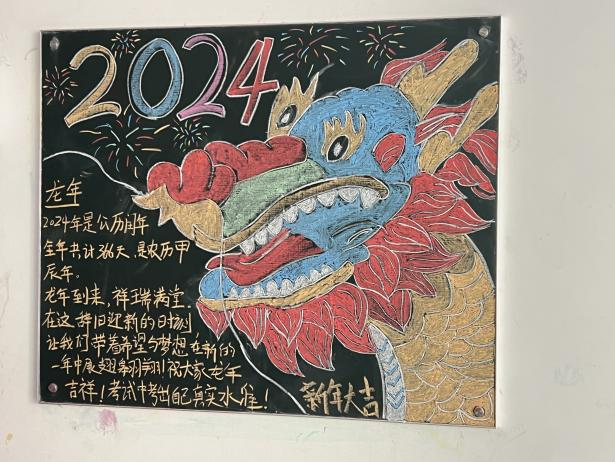 2024
龙年
2024年是公历闰年
全年共计366天,是农历甲
辰年。
龙年到来,祥瑞满堂
在这辞旧迎新的时刻
让我们带着希望与梦想在新的
一年中展翅翱翔!祝大家龙年
吉祥!考试中考出自己真实水准!
新年大吉